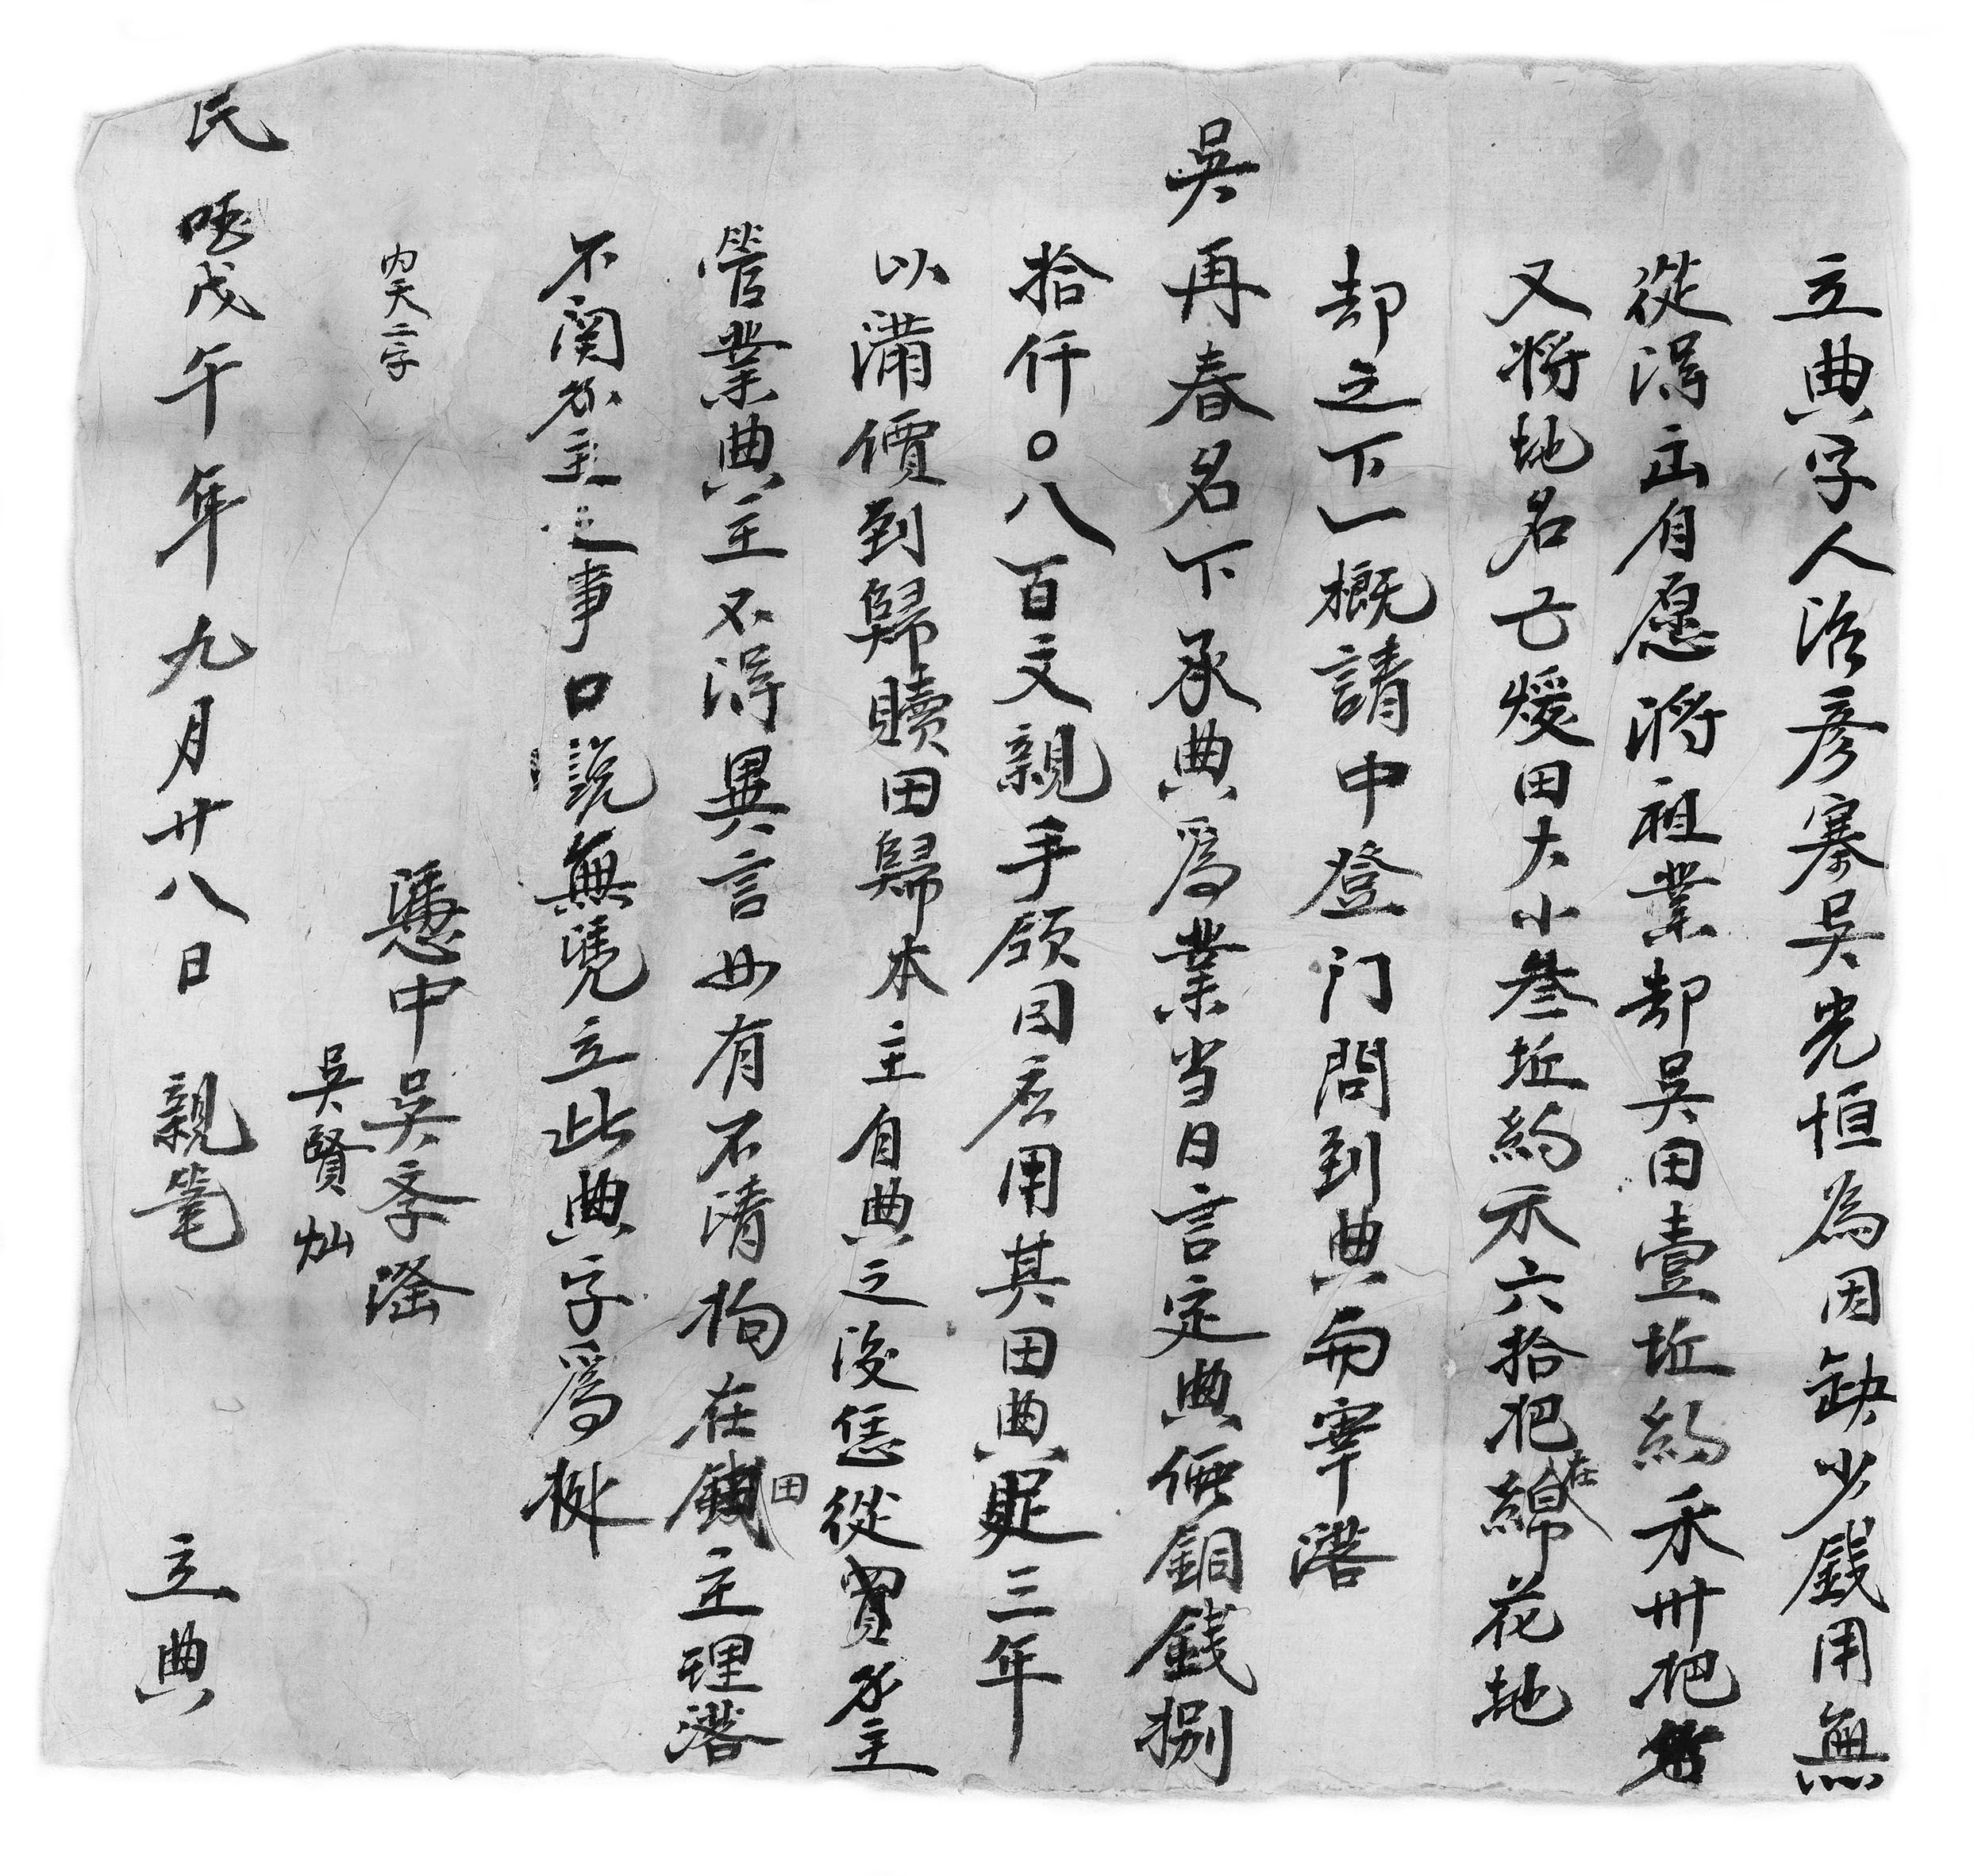 立典字人治彥寨吳光恒為因缺少錢用無
從淂出自愿將祖業却吳田壹坵約禾卅把
又将地名亡煖田大小叁坵約禾六拾把在綿花地
却之下一概請中登门問到典與宰溚
吳再春名下承典為業当日言定典價銅錢捌
拾仟〇八百文親手領囬应用其田典足三年
以滿價到歸贖田歸本主自典之後恁從買主
管業典主不淂異言毋有不清拘在田主理溚
不関买主之事口說無凭立此典字為㨿
內天二字
憑中吳季滛
吳賢灿
民 戊午年九月廿八日 親筆 立典